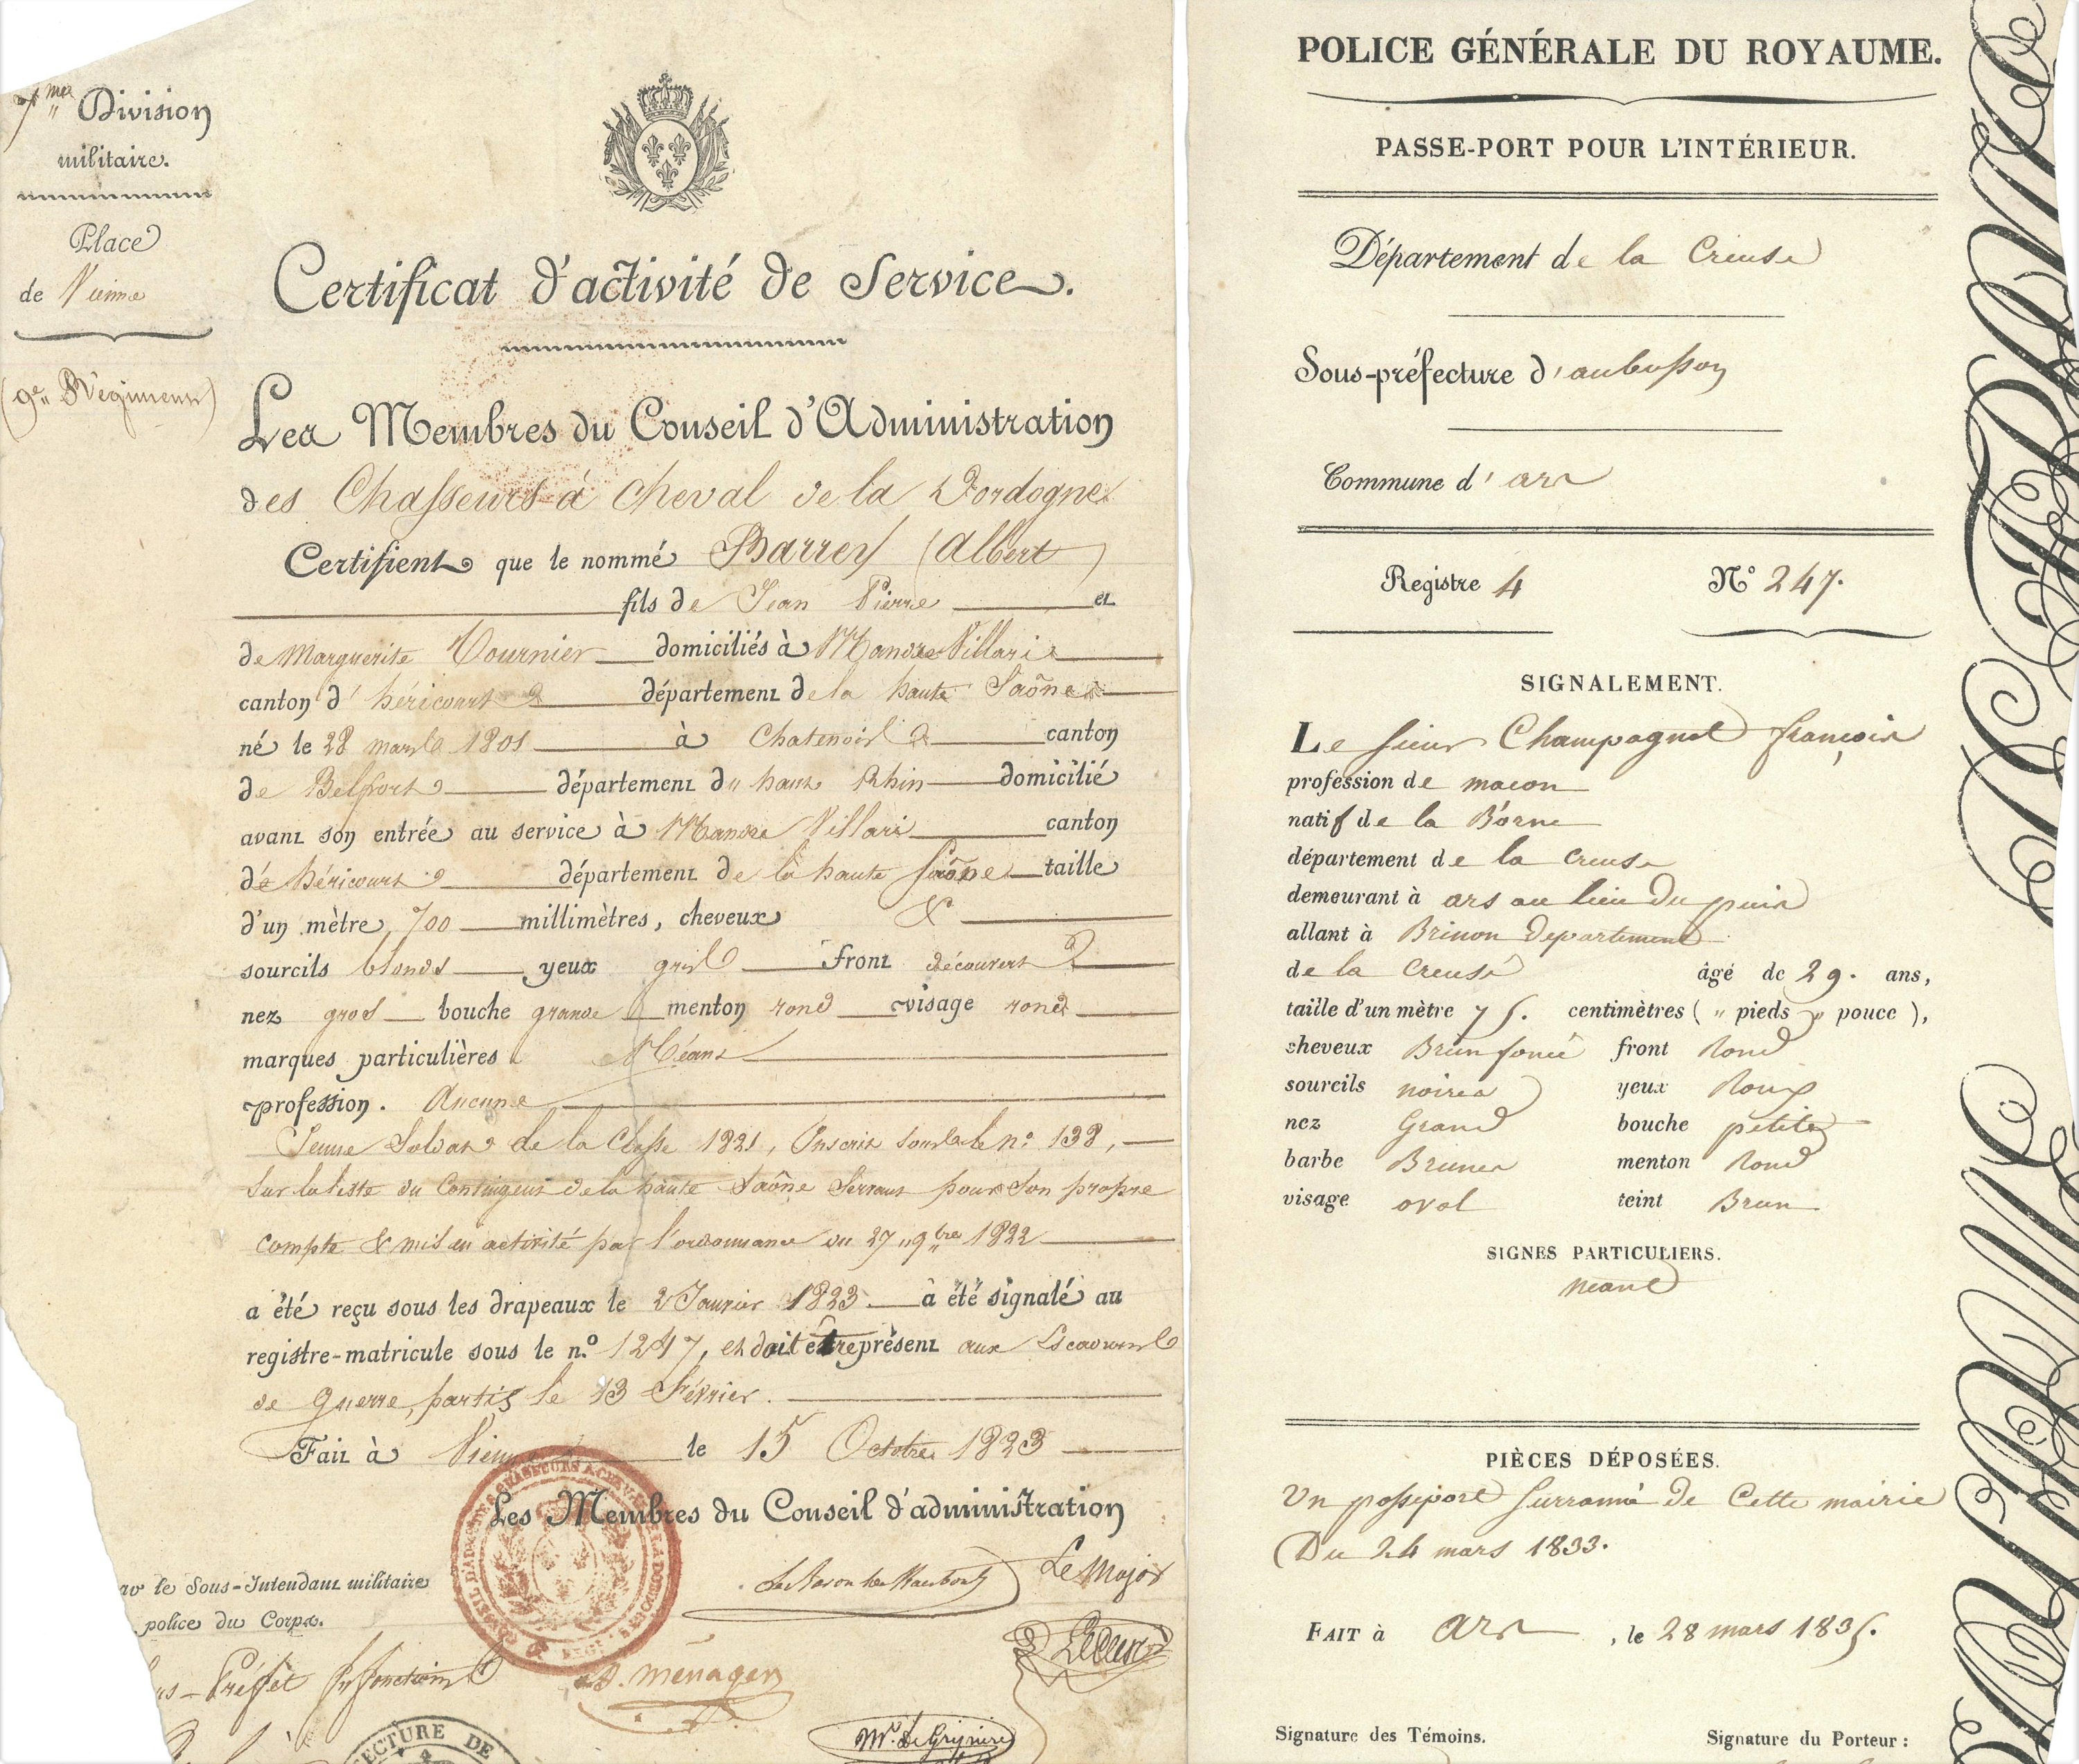 7me Division
militaire.
Place
de Vienne
(9e Régiment)
Certificat d'activité de Service.
Les Membres du Conseil d'Administration
des Chasseurs à cheval de la Dordogne
Certifient que le nommé Barrey (Albert)
fils de Jean Pierre et
de Marguerite Tournier domiciliés à Mandre Villars
canton d'héricourt département de la haute Saône
né le 28 mars 1801 à Chatenois canton
de Belfort département du haut Rhin domicilié
avant son entrée au service à Mandre Villars canton
dé héricourt département de la haute Saône taille
d'un mètre 700 millimètres, cheveux &
sourcils blonds yeux gris front découvert
nez gros bouche grande menton rond visage rond
marques particulières Néant
profession. Aucune
Jeune Soldat de la Classe 1821, Inscrit sous le n° 138,
Sur la liste du Contingent de la haute Saône Servant pour son propre
compte & mis en activité par l'ordonnance du 27 9bre 1822
a été reçu sous les drapeaux le 2 Janvier 1823 a été signalé au
registre-matricule sous le n.° 1247, et doit être présent aux Escadrons
de guerre, partis le 13 Février.
Fait à Vienne le 15 Octobre 1823
Les Membres du Conseil d'administration
le Sous-Intendant militaire
police du Corps.
Le Major
Préfet
D. Ménager
ECTURE DE
POLICE GÉNÉRALE DU ROYAUME.
PASSE-PORT POUR L'INTÉRIEUR.
Département de la Creuse
Sous-préfecture d'aubusson
Commune d'ars
Registre 4 N° 247.
SIGNALEMENT.
Le sieur Champagnol françois
profession de macon
natif de la Borne
département de la Creuse
demeurant à ars au lieu du puis
allant à Brinon Departement
de la Creuse âgé de 29. ans,
taille d'un mètre 75. centimètres ( " pieds " pouce ),
cheveux Brun foncé front Rond
sourcils noires yeux Roux
nez Grand bouche petite
barbe Brune menton Rond
visage oval teint Brun
SIGNES PARTICULIERS.
neant
PIÈCES DÉPOSÉES.
Un passeport surranné de Cette mairie
Du 24 mars 1833.
FAIT à Ars, le 28 mars 1835.
Signature des Témoins. Signature du Porteur :